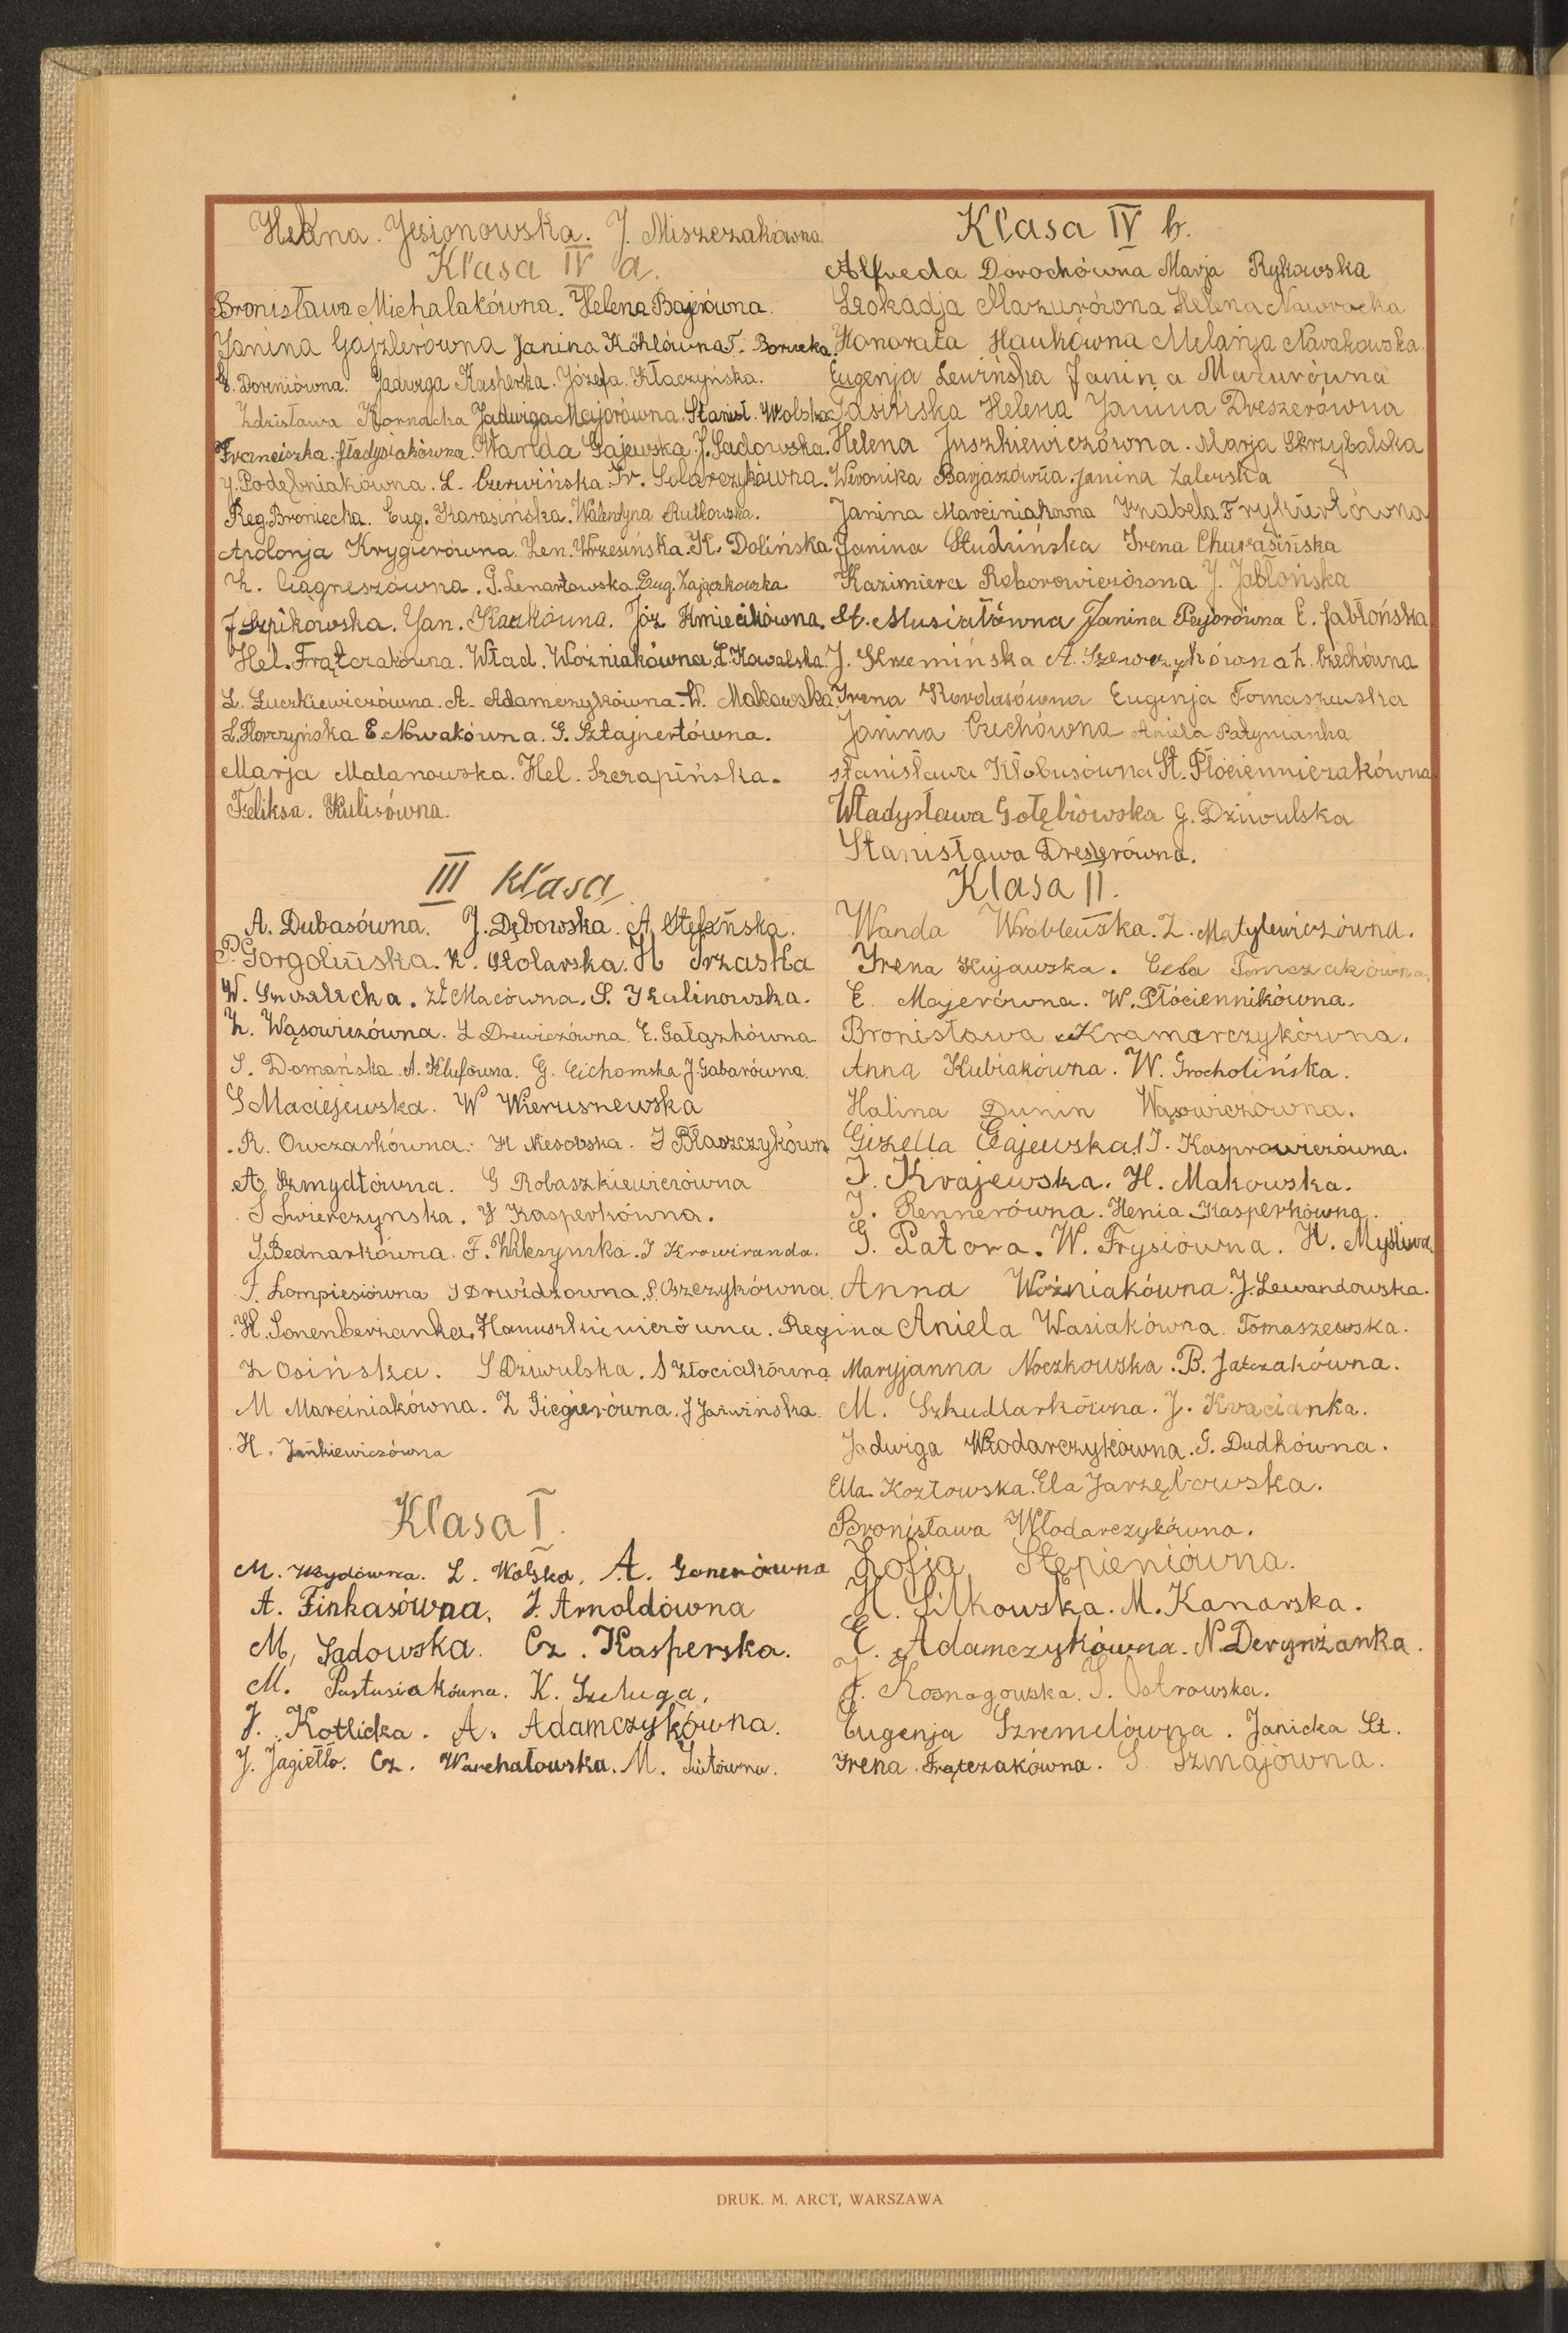 Helena. Jesionowska. J. Miszczakówna.
Klasa IV a.
Bronisława Michalakówna. Helena Bajerówna.
Janina Gajzlerówna Janina Köhlówna T. Borucka.
E. Dorniówna. Jadwiga Kasperska. Józefa Kłaczyńska.
Zdzisława Kornacka Jadwiga Majorówna. Stanisł. Wolska
Franciszka. Władysiakówna. Wanda Gajewska. J. Sadowska.
J. Podębniakówna. L. Czerwińska. Fr. Solarczykówna.
Reg. Broniecka. Eug. Karasińska. Walentyna Rutkowska.
Apolonja Krygierówna. Len. Wrzesińska. K. Dolińska
Z. Ciągneszówna. G. Lenartowska. Eug. Zajączkowska
J. Szpikowska. Jan. Kaczkówna. Józ Kmiecikówna.
Hel. Frątczakówna. Wład. Woźniakówna, L. Kowalska.
L. Luczkiewiczówna. A. Adamczykówna. W. Makowska
L. Florczyńska E. Nowakówna. G. Sztajnertówna.
Marja Malanowska. Hel. Szczapińska.
Feliksa. Kulisówna.
III klasa
A. Dubasówna. J. Dębowska. A. Stefańska.
P. Gorgolińska. K. Stolarska. H Trzaska
W. Zł. Macówna. S. Kalinowska.
Z. Wąsowiczówna. L Drewiczówna E. Gałązkówna
S. Domańska A. Klufówna. G. Cichomska J. Gabarówna.
S Maciejewska. W Wieruszewska
R. Owczarkówna. H Mesowska. J Błaszczykówn
A. Szmydtówna. G Robaszkiewiczówna
S Świerczynska. J Kasperkówna.
J. Bednarkówna. F. Wilczyńska. J Krowiranda.
J. Lompiesiówna J Drwidzówna, S. Oszczykówna.
H. Sonenberżanka, Hanuszkiewiczówna. Regina
Z Osińska. S Dziwulska. S Złociakówna
M Marciniakówna. Z Giegierówna. J Jaźwińska.
H. Jankiewiczówna
Klasa I.
M. L. Wolska. A. Gonerówna
A. Finkasówna, J. Arnoldówna
M, Sadowska. Cz. Kasperska.
M. Pastusiakówna. K. Szeluga,
J. Kotlicka. A. Adamczykówna.
J. Jagiełło. Cz. Warchałowska. M. Jutówna.
Klasa IV b.
Alfreda Dorochówna Marja Rykowska
Leokadja Mazurówna Helena Nawrocka
Honorata Haukówna Melanja Nowakowska.
Eugenja Lewińska Janina Mazurówna
Jasińska Helena Janina Dreszerówna
Helena Juszkiewiczówna. Marja Skrzybalska
Weronika Barjaszówna. Janina Zalewska
Janina Marciniakówna Izabela Frykiertówna
Janina Studzińska Irena Charasińska
Kazimiera Roborowiczówna J. Jabłońska
St. Musiałówna Janina Pejorówna E. Jabłońska
J. Skrzemińska A. Szewczykówna Z. Czechówna
Irena Kordasówna Eugenja Tomaszewska
Janina Czechówna Aniela Patynianka
Stanisława Kłobusówna St. Płócienniczakówna
Władysława Gołębiowska G. Dziwulska
Stanisława Dreslerówna.
Klasa II.
Wanda Wróblewska. Z. Matylewiczówna.
Irena Kujawska. Cesia Tomczakówna.
E. Majerówna. W. Płóciennikówna.
Bronisława Kramarczykówna.
Anna Kubiakówna. W. Grocholińska.
Halina Dunin Wąsowiczówna.
Gizella Gajewska. J. Kasprowiczówna.
J. Krajewska. H. Makowska.
J. Rennerówna. Henia Kasperkówna.
G. Patora. W. Frysiówna. H. Myśliwa.
Anna Woźniakówna. J. Lewandowska.
Aniela Wasiakówna. Tomaszewska.
Maryjanna Noczkowska. B. Jatczakówna.
M. Szkudlarkówna. J. Kvacianka.
Jadwiga Włodarczykówna. G. Dudkówna.
Ella Kozłowska. Ela Jarzębowska.
Bronisława Włodarczykówna.
Zofja Stępieniówna.
H. Sitkowska. M. Kanarska.
E. Adamczykówna. N. Derynżanka.
J. Kosnogowska. S. Ostrowska.
Eugenja Szremelówna. Janicka St.
Irena Frątczakówna. S. Szmajówna.
DRUK. M. ARCT, WARSZAWA